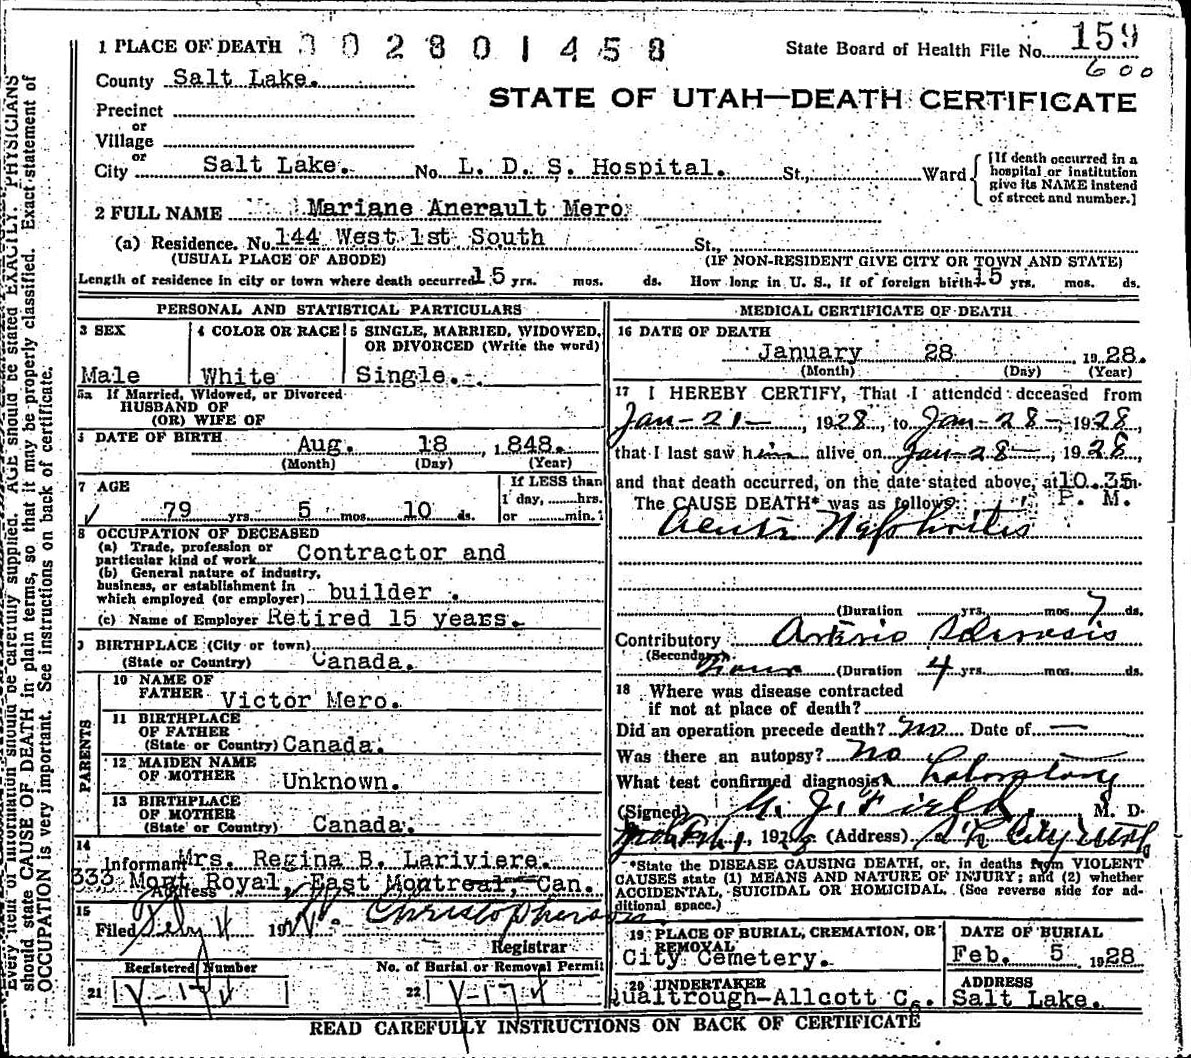 1 PLACE OF DEATH 002801458
State Board of Health File No. 159
600
County Salt Lake.
STATE OF UTAH—DEATH CERTIFICATE
Precinct
or
Village
or
City Salt Lake. No. L. D. S. Hospital. St., Ward
[If death occurred in a hospital or institution give its NAME instead of street and number.]
2 FULL NAME Mariane Anerault Mero
(a) Residence. No. 144 West 1st South St.,
(USUAL PLACE OF ABODE) (IF NON-RESIDENT GIVE CITY OR TOWN AND STATE)
Length of residence in city or town where death occurred 15 yrs. mos. ds. How long in U. S., if of foreign birth? 15 yrs. mos. ds.
PERSONAL AND STATISTICAL PARTICULARS
3 SEX
Male
4 COLOR OR RACE
White
5 SINGLE, MARRIED, WIDOWED, OR DIVORCED (Write the word)
Single.
5a If Married, Widowed, or Divorced
HUSBAND OF
(OR) WIFE OF
DATE OF BIRTH Aug. 18, 1848.
(Month) (Day) (Year)
7 AGE
79 yrs. 5 mos. 10 ds.
If LESS than
1 day, hrs.
or min.?
8 OCCUPATION OF DECEASED
(a) Trade, profession or particular kind of work Contractor and
(b) General nature of industry, business, or establishment in which employed (or employer) builder.
(c) Name of Employer Retired 15 years.
9 BIRTHPLACE (City or town)
(State or Country) Canada.
PARENTS
10 NAME OF FATHER Victor Mero.
11 BIRTHPLACE OF FATHER
(State or Country) Canada.
12 MAIDEN NAME OF MOTHER Unknown.
13 BIRTHPLACE OF MOTHER
(State or Country) Canada.
14
Informant Mrs. Regina B. Lariviere.
Address 333 Mont Royal, East Montreal, Can.
15
Filed Feby 4 19 Christopherson
Registrar
Registered Number
21 V-174
No. of Burial or Removal Permit
22 V-174
MEDICAL CERTIFICATE OF DEATH
16 DATE OF DEATH
January 28 1928.
(Month) (Day) (Year)
17 I HEREBY CERTIFY, That I attended deceased from
Jan-21-, 1928, to Jan-28-, 1928,
that I last saw him alive on Jan-28-, 1928,
and that death occurred, on the date stated above, at 10.35 m.
P. M.
The CAUSE DEATH* was as follows:
Acute Nephritis
(Duration yrs. mos. 7 ds.
Contributory Arterio Sclerosis
(Secondary)
(Duration 4 yrs. mos. ds.
18 Where was disease contracted
if not at place of death?
Did an operation precede death? No Date of —
Was there an autopsy? No
What test confirmed diagnosis? Laboratory
(Signed) G. J. Field M. D.
192 (Address) S L City Utah
*State the DISEASE CAUSING DEATH, or, in deaths from VIOLENT
CAUSES state (1) MEANS AND NATURE OF INJURY; and (2) whether
ACCIDENTAL, SUICIDAL OR HOMICIDAL. (See reverse side for ad-
ditional space.)
19 PLACE OF BURIAL, CREMATION, OR REMOVAL
City Cemetery.
DATE OF BURIAL
Feb. 5 1928
20 UNDERTAKER
Qualtrough-Allcott Co.
ADDRESS
Salt Lake.
READ CAREFULLY INSTRUCTIONS ON BACK OF CERTIFICATE
Every item of information should be carefully supplied. AGE should be stated EXACTLY. PHYSICIANS
should state CAUSE OF DEATH in plain terms, so that it may be properly classified. Exact statement of
OCCUPATION is very important. See instructions on back of certificate.